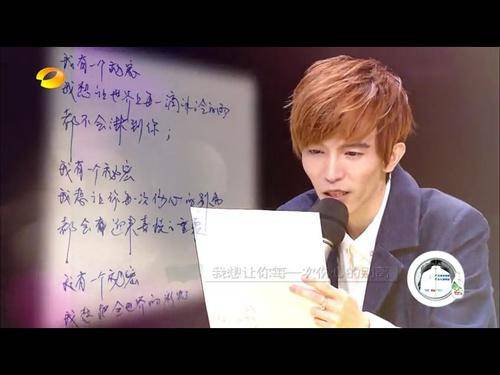 我有一个秘密
我想让世界上每一滴冰冷的雨
都不会淋到你；
我有一个秘密
我想让你每一次伤心的别离
都会有迎来喜悦的重逢
我有一个秘密
我想把全世界的
我想让你每一次伤心的别离